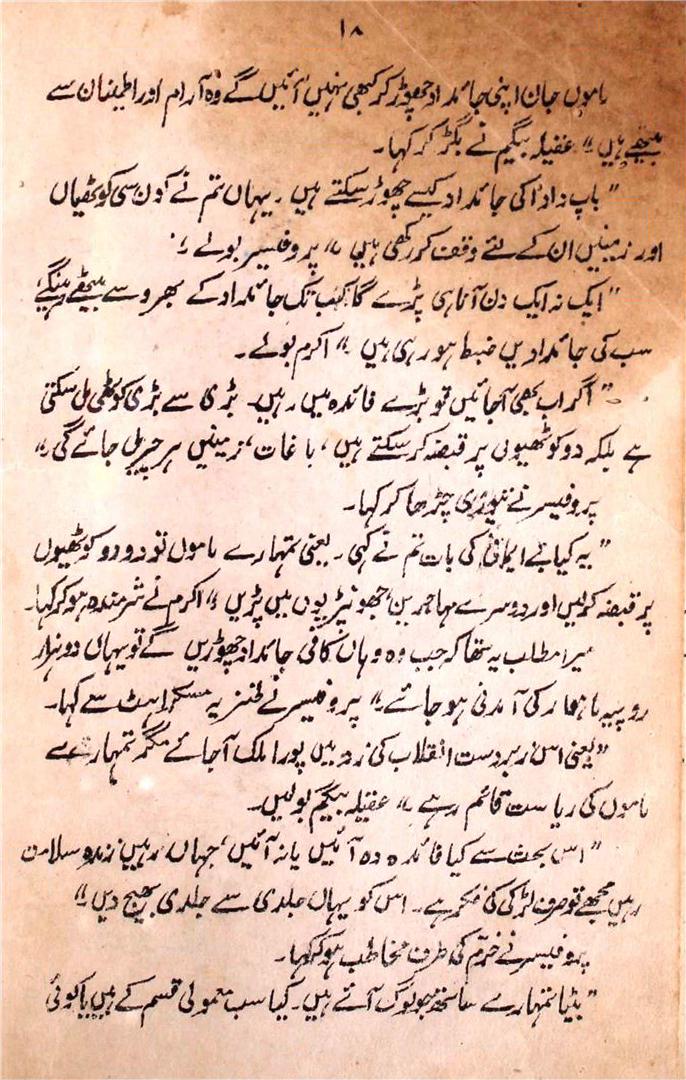 ۱۸
ماموں جان اپنی جائداد چھوڑ کر کبھی نہیں آئیں گے وہ آرام اور اطینان سے
بیٹھے ہیں" عقیلہ بیگم نے بگڑ کر کہا۔
"باپ دادا کی جائداد کیسے چھوڑ سکتے ہیں۔ یہاں تم نے کون سی کوٹھیاں
اور زمینیں ان کے لئے وقف کر رکھی ہیں" پروفیسر بولے۔
"ایک نہ ایک دن آنا ہی پڑے گا کب تک جائداد کے بھروسے بیٹھے رہینگے
سب کی جائدادیں ضبط ہو رہی ہیں" اکرم بولے۔
"اگر اب بھی آجائیں تو بڑے فائدہ میں رہیں۔ بڑی سے بڑی کوٹھی مل سکتی
ہے بلکہ دو کوٹھیوں پر قبضہ کر سکتے ہیں، باغات، زمینیں ہر چیز مل جائے گی"
پروفیسر نے تیوری چڑھا کر کہا۔
"یہ کیا بے ایمانی کی بات تم نے کہی۔ یعنی تمہارے ماموں تو دو دو کوٹھیوں
پر قبضہ کر لیں اور دوسرے مہاجرین جھونپڑیوں میں پڑیں" اکرم نے شرمندہ ہو کر کہا۔
میرا مطلب یہ تھا کہ جب وہ وہاں کافی جائداد چھوڑیں گے تو یہاں دو ہزار
روپیہ ماہوار کی آمدنی ہو جائے" پروفیسر نے طنزیہ مسکراہٹ سے کہا۔
"یعنی اس زبردست انقلاب کی زد میں پورا ملک آجائے مگر تمہارے
ماموں کی ریاست قائم رہے" عقیلہ بیگم بولیں۔
"اس بحث سے کیا فائدہ وہ آئیں یا نہ آئیں، جہاں رہیں زندہ سلامت
رہیں مجھے تو صرف لڑکی کی فکر ہے۔ اس کو یہاں جلدی سے جلدی بھیج دیں"
پروفیسر نے خرم کی طرف مخاطب ہو کر کہا۔
"بیٹا تمہارے ساتھ جو لوگ آتے ہیں۔ کیا سب معمولی قسم کے ہیں یا کوئی